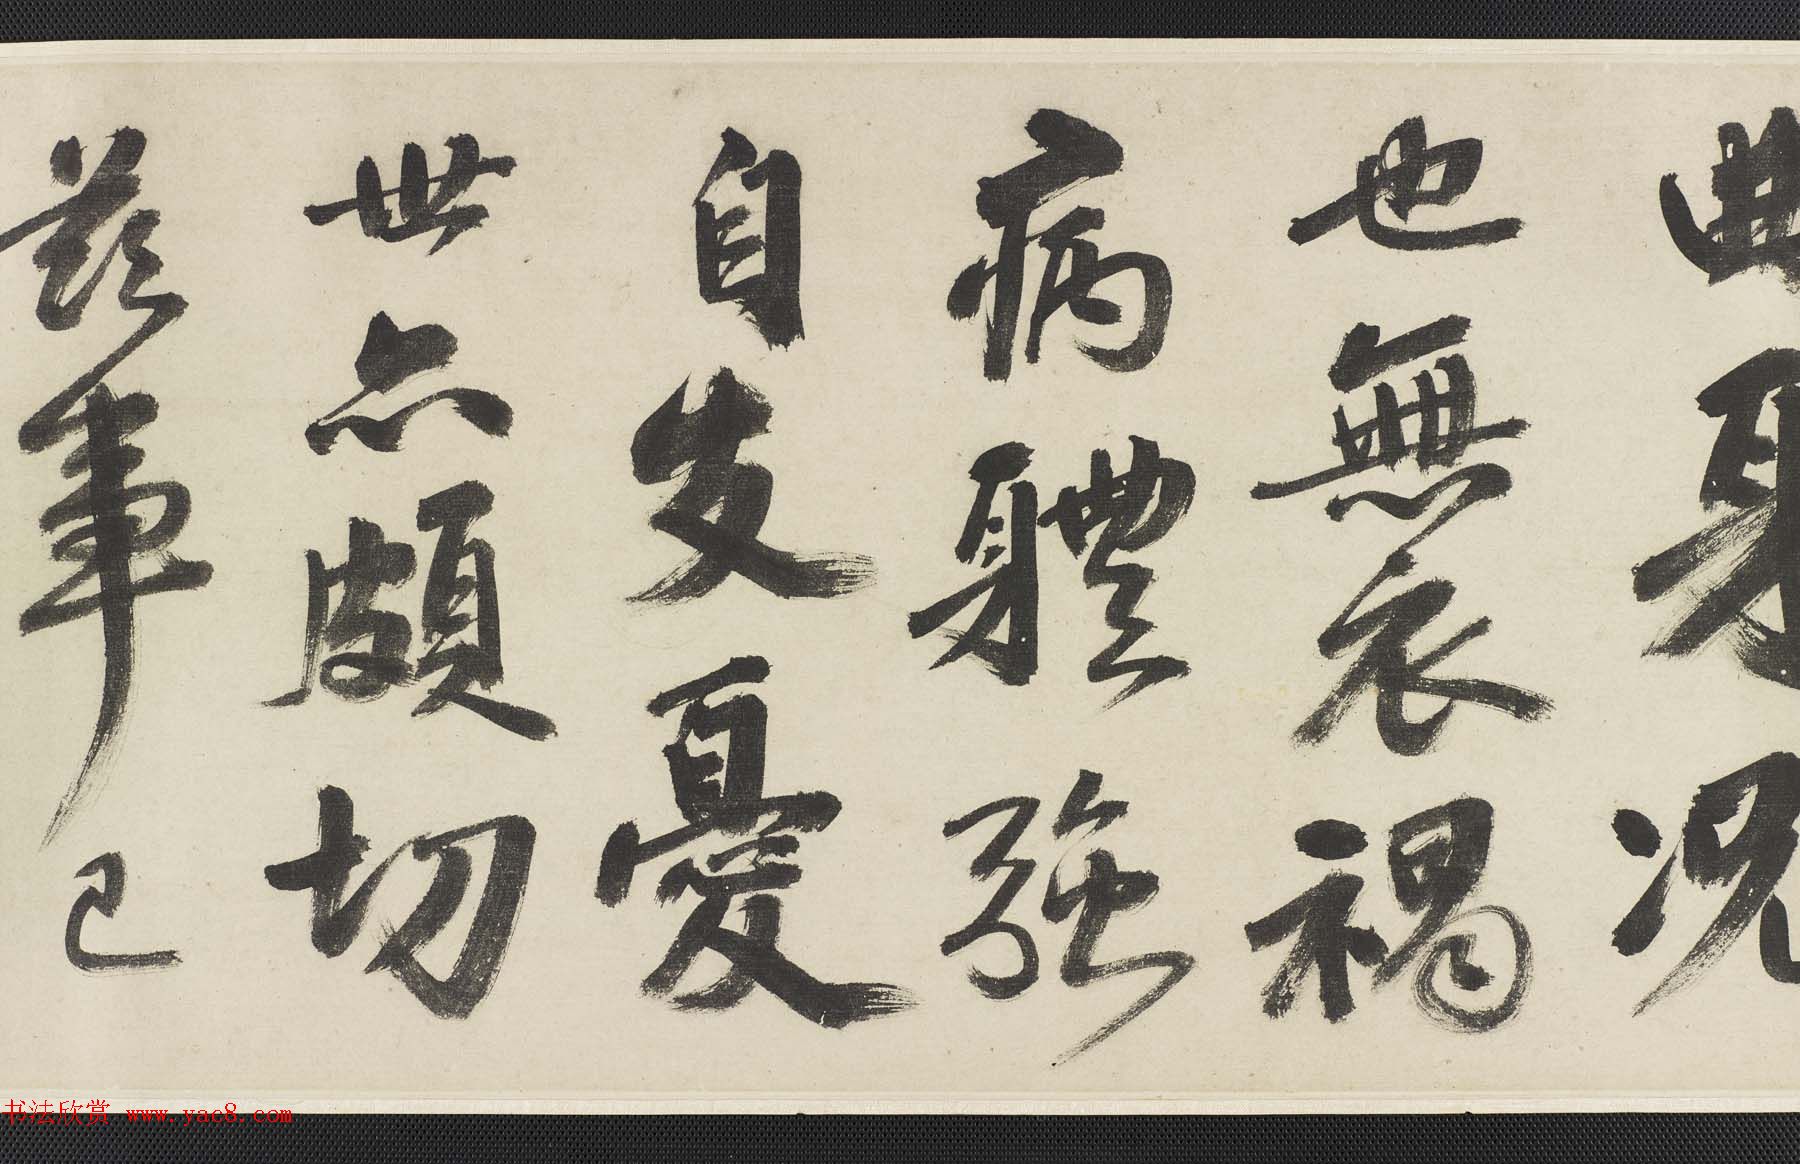 身况
也無衣褐
病體強
自支憂
世亦頗切
茲事已
书法欣赏 www.yac8.com